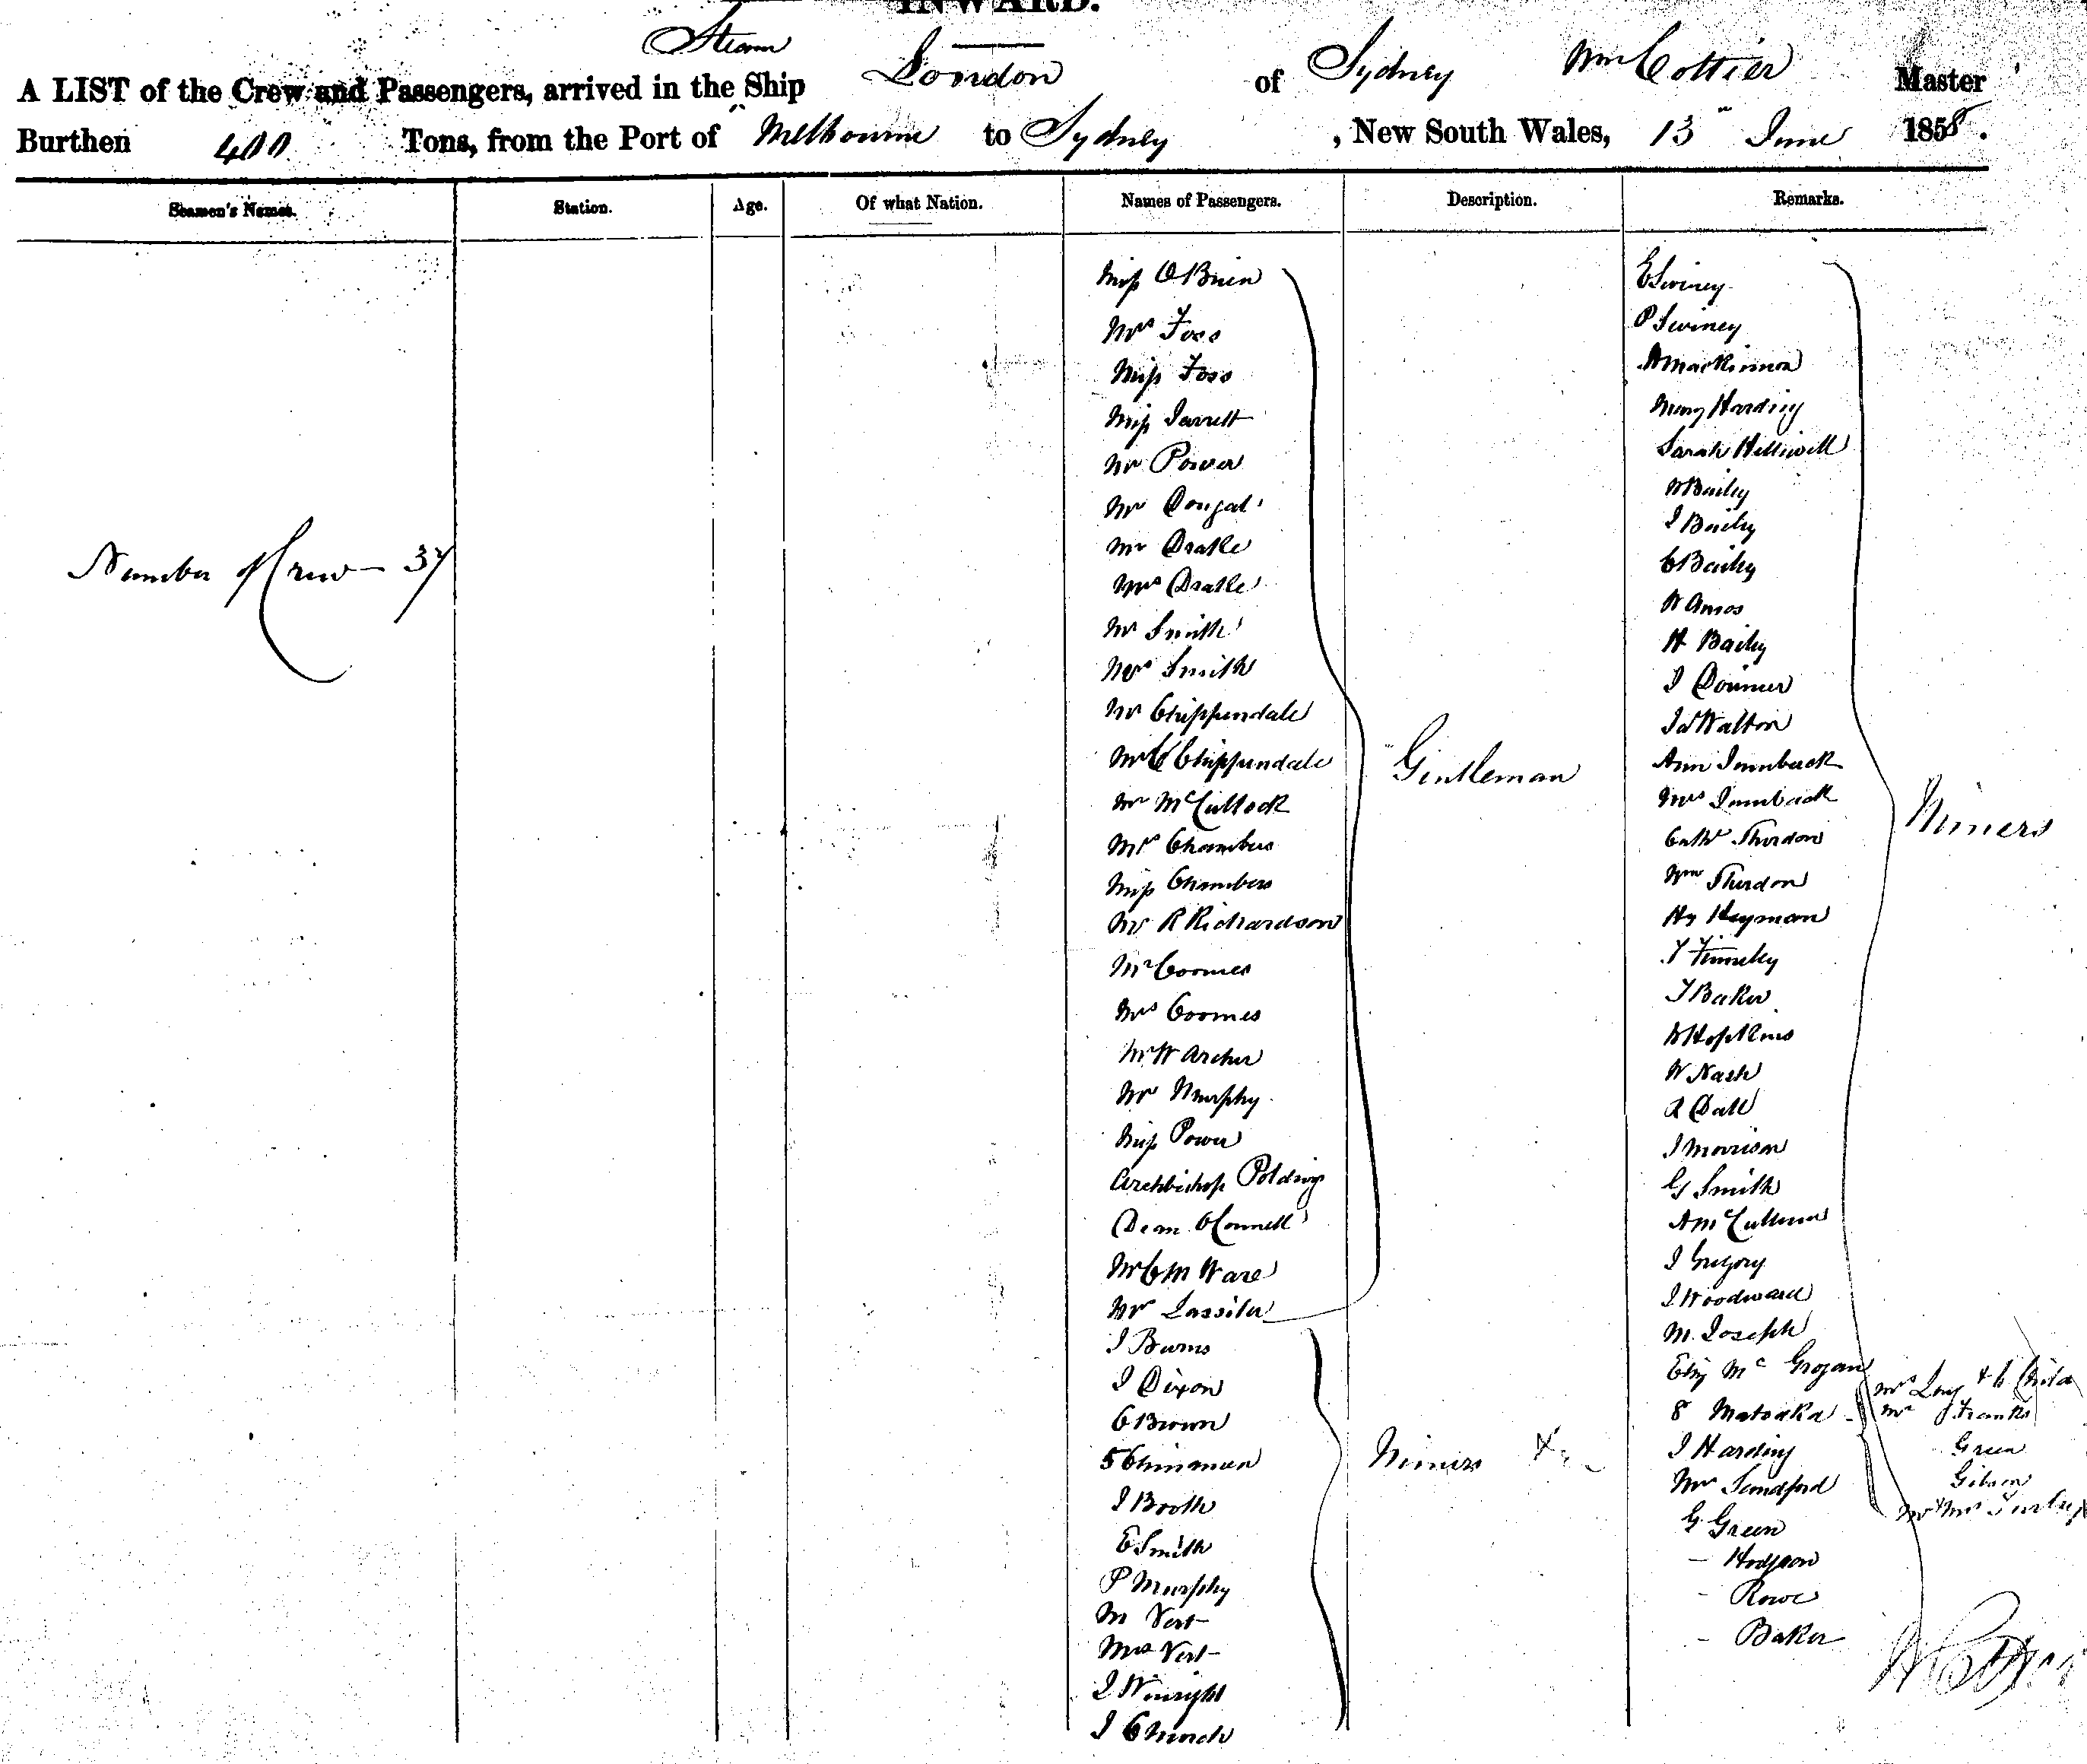 INWARD.
Steam
A LIST of the Crew and Passengers, arrived in the Ship London of Sydney Wm Cottier Master
Burthen 400 Tons, from the Port of Melbourne to Sydney, New South Wales, 13 June 1858.
Seamen's Names. Station. Age. Of what Nation. Names of Passengers. Description. Remarks.
Number of Crew - 37
Miss O'Brien
Mrs Foss
Miss Foss
Miss Jarrett
Mr Power
Mr Dougal
Mr Drake
Mrs Drake
Mr Smith
Mrs Smith
Mr Chippendale
Mr C Chippendale
Mr McCullock
Mrs Chambers
Miss Chambers
Mr R Richardson
Mr Coomes
Mrs Coomes
Mr W Archer
Mr Murphy
Miss Power
Archbishop Polding
Dean O'Connell
Mr C M Ware
Mr Lassiter
Gentleman
J Burns
J Dixon
C Brown
5 Chinaman
J Booth
E Smith
P Murphy
M Vert
Mrs Vert
J Winright
J Church
Miners
E Swiney
P Swiney
A Mackinnon
Mary Harding
Sarah Helliwell
W Baily
J Baily
C Baily
W Amos
H Baily
J Dormer
Jas Walton
Ann
Mrs
Cath Thurdon
Wm Thurdon
Hy Heyman
T
T Baker
W Hopkins
W Nash
R Dall
J Morrison
G Smith
A McCullum
J Gregory
J Woodward
M Joseph
Eliz Mc Grogan
8 Matoaka
J Harding
Mr Sandford
G Green
- Hodgson
- Rowe
- Baker
Miners
Mrs Long & 6 Child
Mr Franks
Green
Gibson
Mr & Mrs
W Cottier